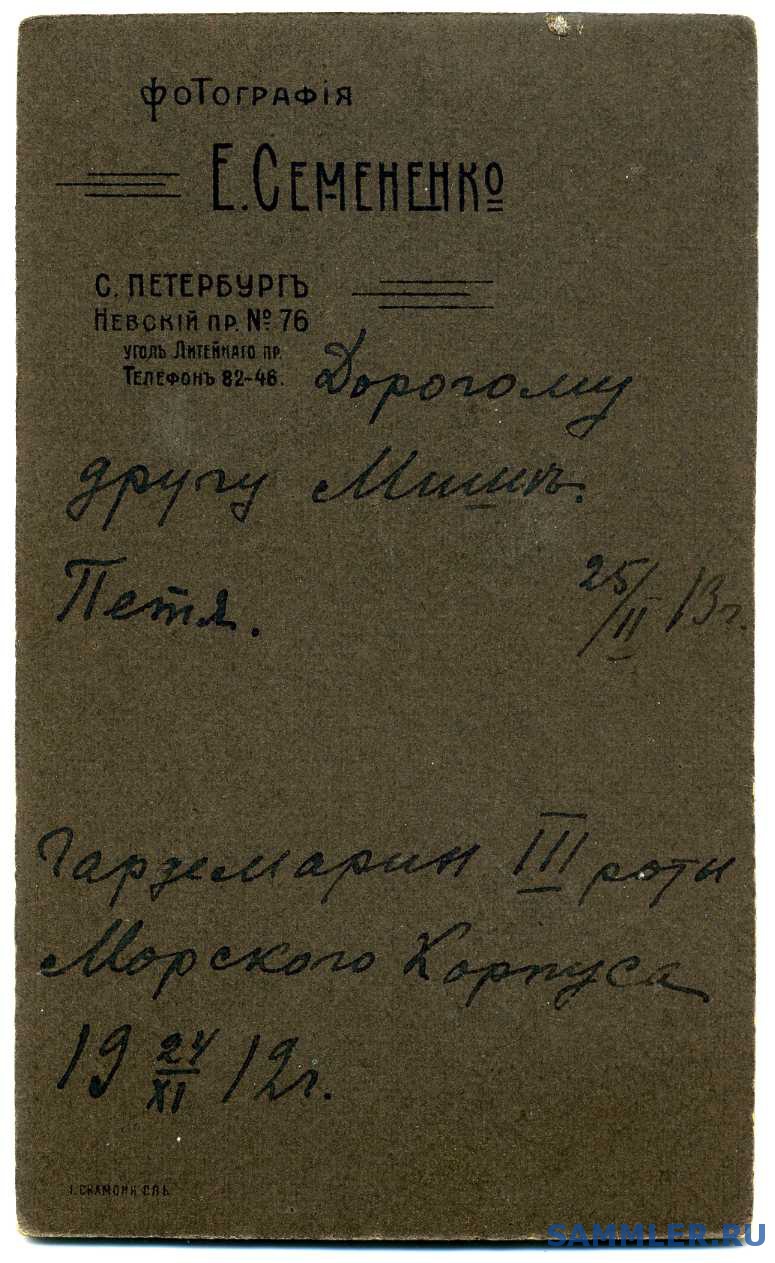 фоТографія
Е. Семененко
С. Петербургъ
Невскій пр. № 76
уголъ Литейнаго пр.
Телефонъ 82-46.
Дорогому
другу Мишѣ.
Петя. 25/II 13г.
Гардемарин III роты
Морского Корпуса
19 24/XI 12г.
І. Скамони СПБ
SAMMLER.RU